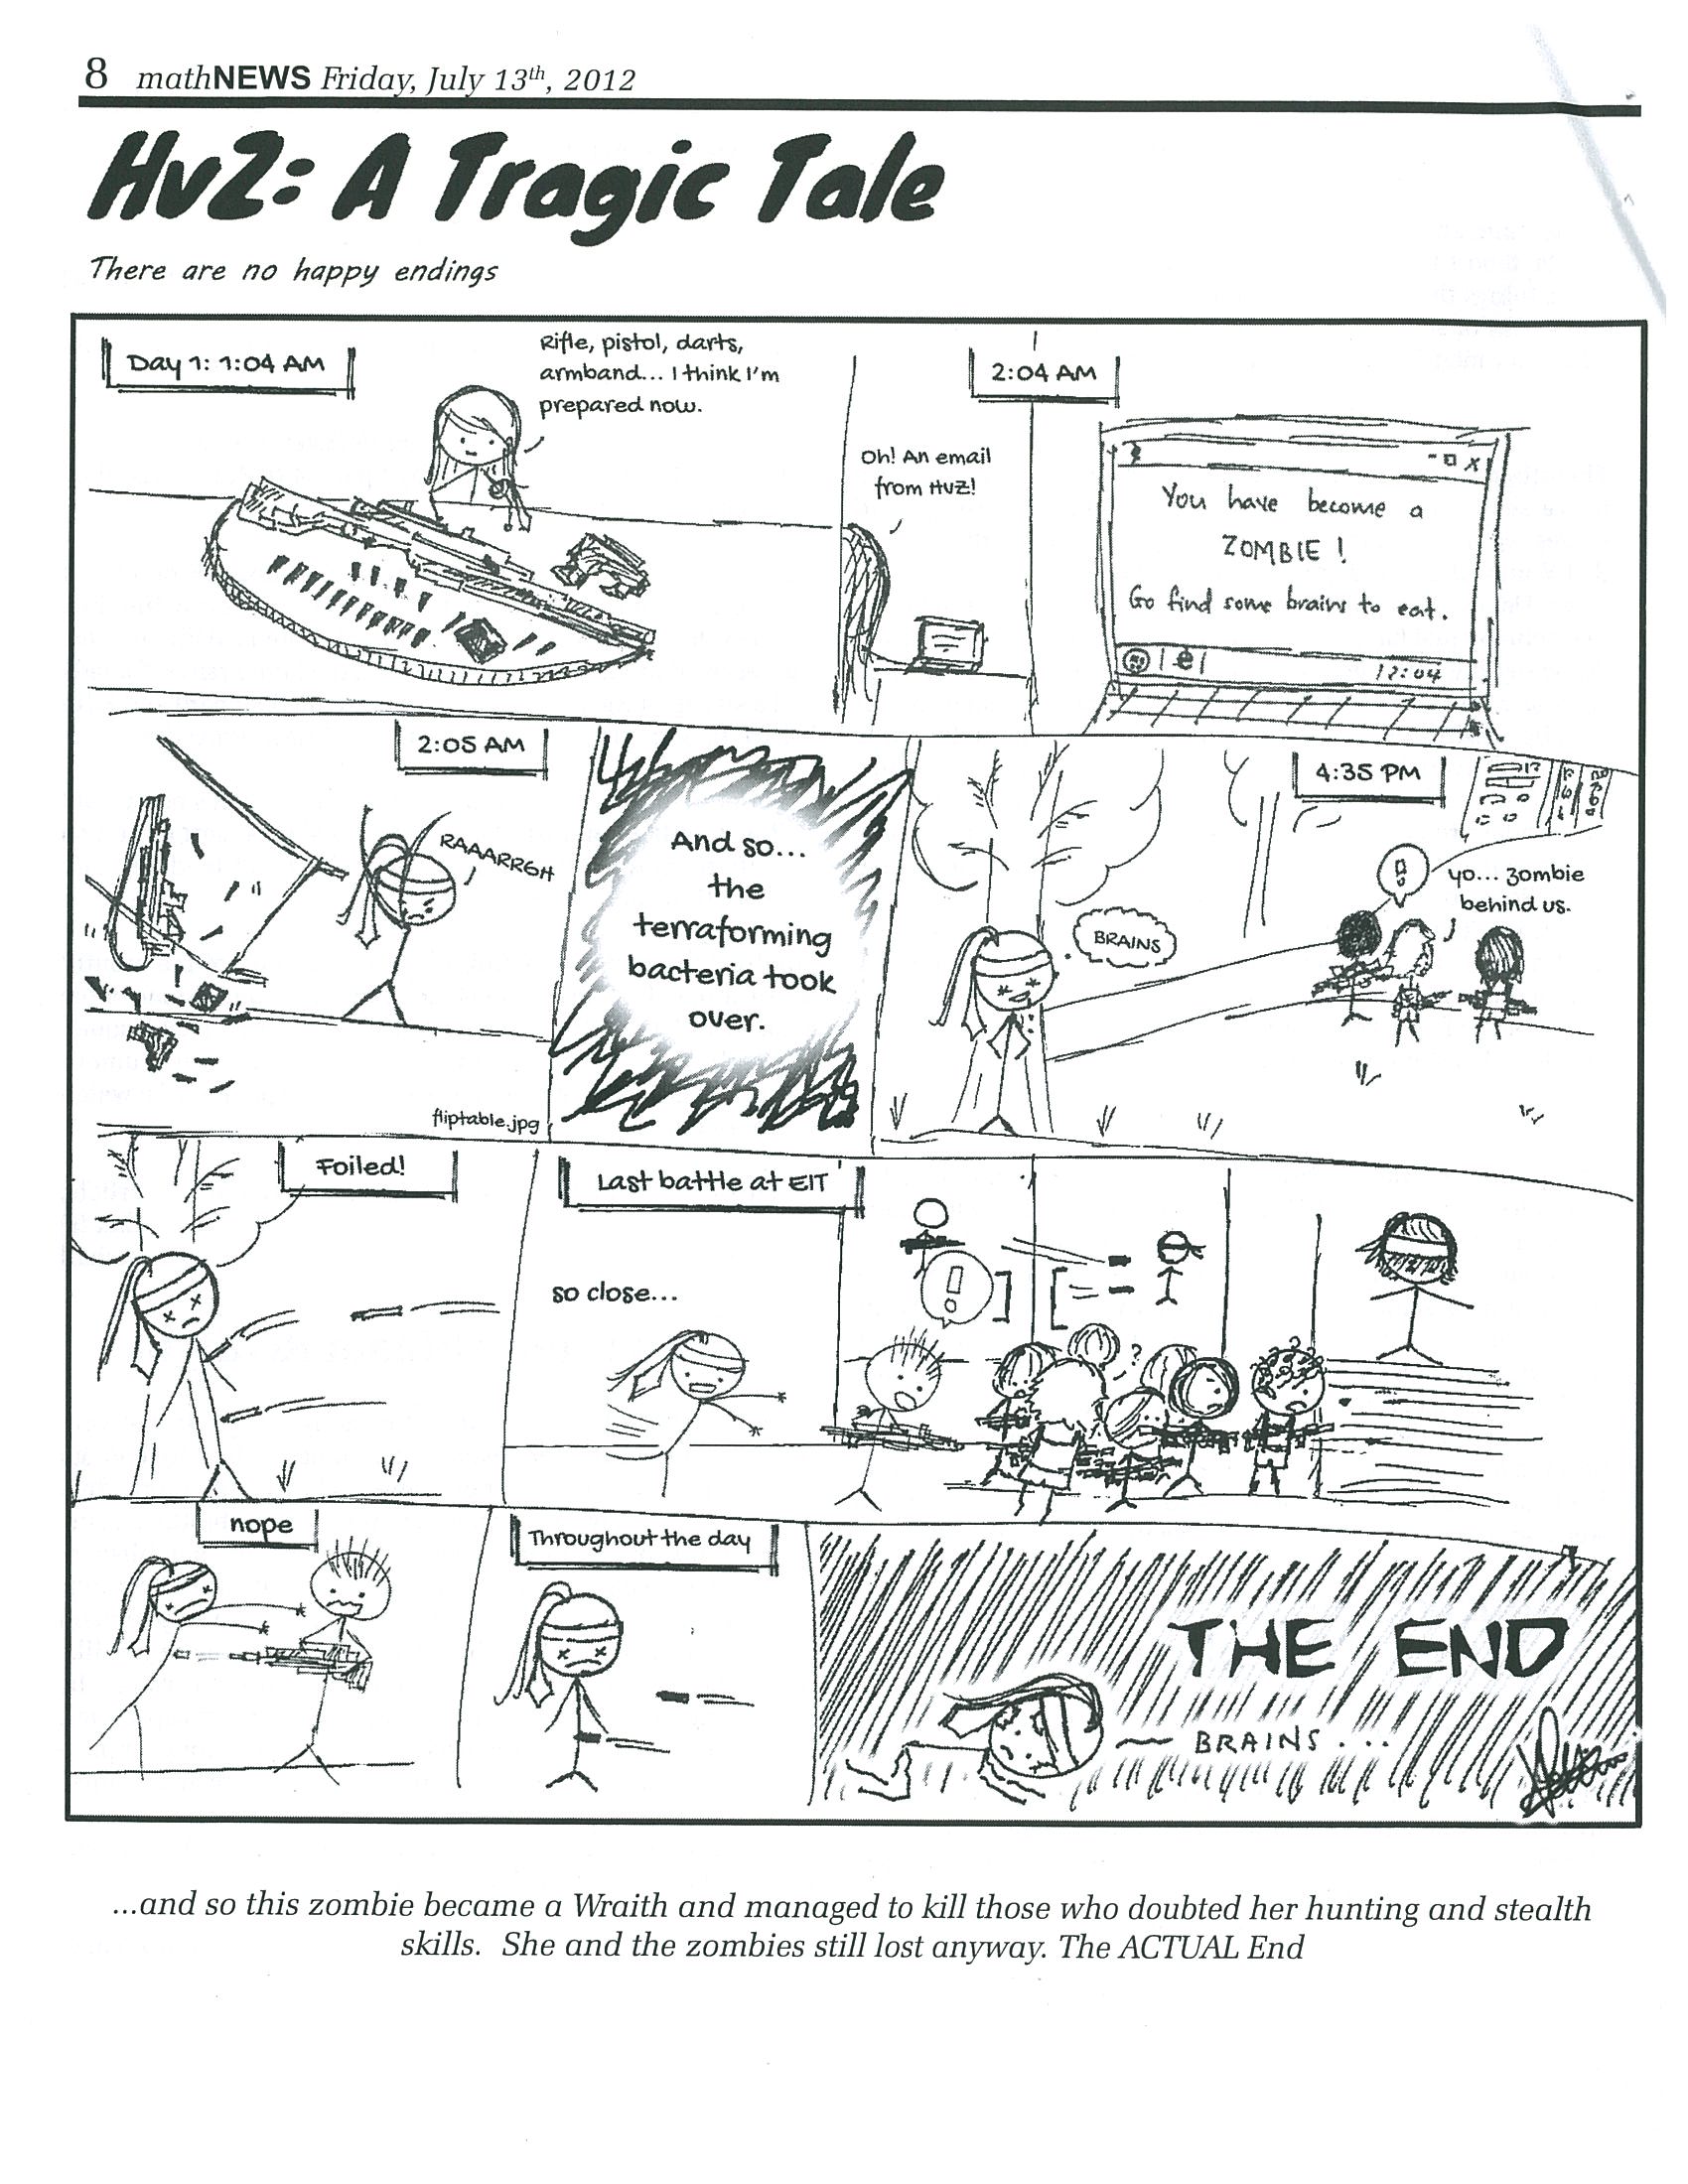 8 mathNEWS Friday, July 13th, 2012
HvZ: A Tragic Tale
There are no happy endings
Day 1: 1:04 AM
Rifle, pistol, darts,
armband... I think I'm
prepared now.
2:04 AM
Oh! An email
from HvZ!
You have become a
ZOMBIE!
Go find some brains to eat.
12:04
2:05 AM
RAAARRGH
fliptable.jpg
And so...
the
terraforming
bacteria took
over.
4:35 PM
BRAINS
!
yo... zombie
behind us.
Foiled!
Last battle at EIT
so close...
!
?
nope
Throughout the day
THE END
~ BRAINS...
...and so this zombie became a Wraith and managed to kill those who doubted her hunting and stealth
skills. She and the zombies still lost anyway. The ACTUAL End